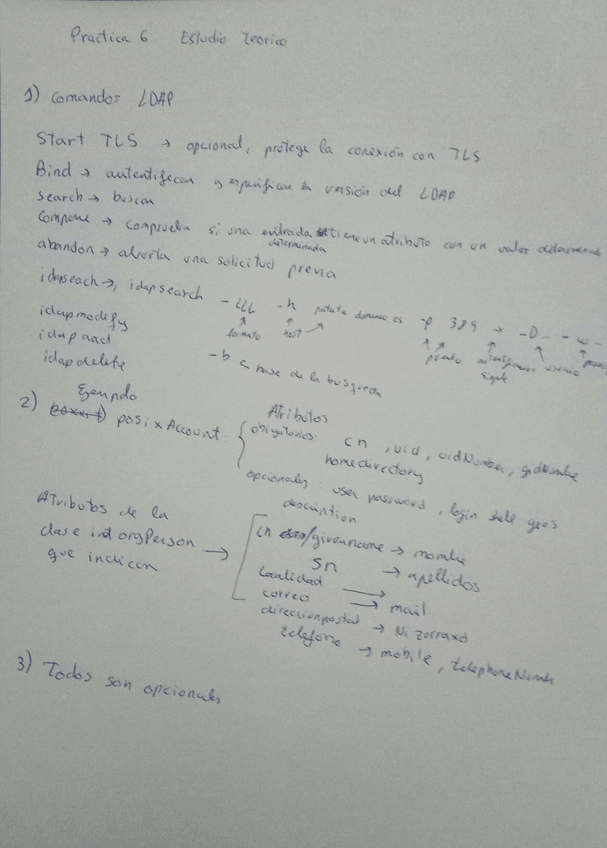 Practica 6 Estudio Teorico
1) Comandos LDAP
Start TLS → opcional, protege la conexión con TLS
Bind → autentificar y especificar la versión del LDAP
search → buscar
Compare → comprueba si una entrada determinada tiene un atributo con un valor determinado
abandon → aborta una solicitud previa
ldapseach →, ldapsearch -LLL -h dominio es -p 389 -x -D.. -w..
formato host puerto simple usuario
ldapmodify
ldap add
ldap delete -b < base de la busqueda
2) Ejemplo posixAccount: Atributos
obligatorios: cn, uid, uidNumber, gidNumber
homedirectory
opcionales: user password, login shell gecos
description
Atributos de la
clase inetorgPerson →
que indican
cn /givenname → nombre
sn → apellidos
Localidad →
correo → mail
direccionpostal →
telefono → mobile, telephoneNumber
3) Todos son opcionales